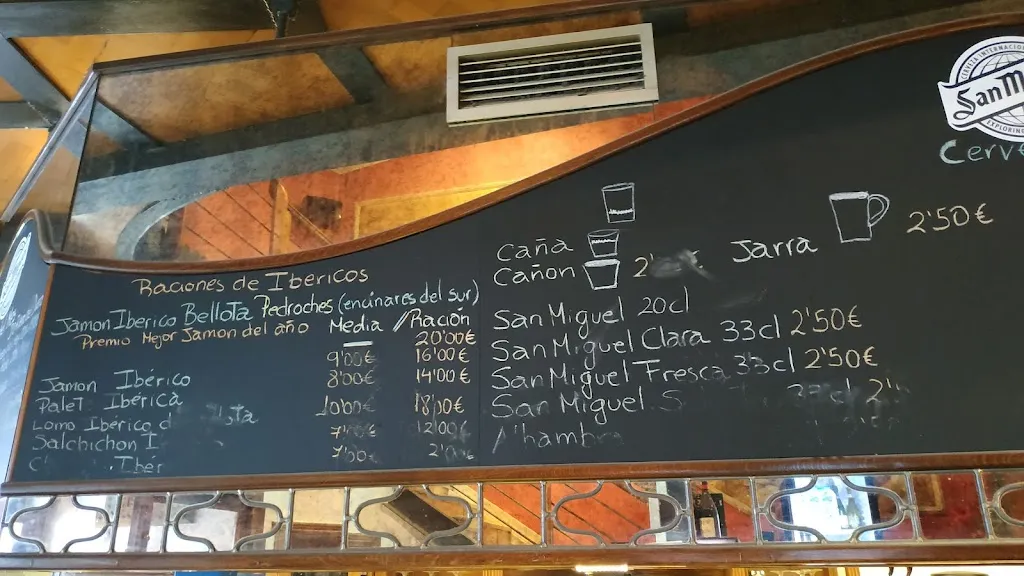 Raciones de Ibericos
Jamon Iberico Bellota Pedroches (encinares del sur)
Premio Mejor Jamon del año Media / Ración
20'00€
9'00€ 16'00€
Jamon Ibérico 8'00€ 14'00€
Palet Ibérica
Lomo Iberico d 10'00€ 18'00€
Salchichon I 7'00€ 12'00€
Ibér 7'00€
San M
Cerve
Caña
Cañon 2'
Jarra 2'50€
San Miguel 20cl
San Miguel Clara 33cl 2'50€
San Miguel Fresca 33cl 2'50€
San Miguel S cl 2'
Alhambra